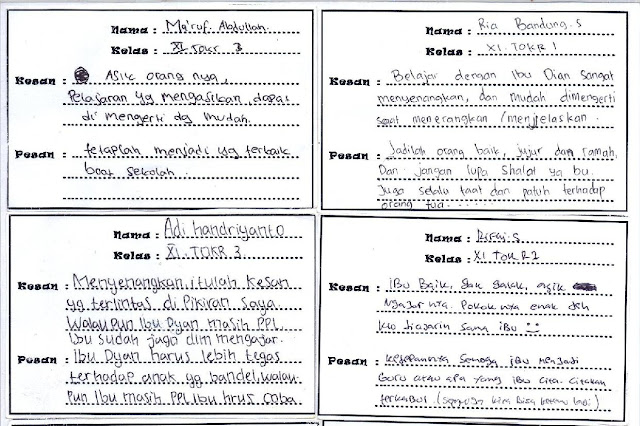 Nama : Ma'ruf Abdullah
Kelas : XI TOKR 3
Kesan : Asik orang nya,
Pelajaran yg mengasikan, dapat
di mengerti dg mudah.
Pesan : tetaplah menjadi yg terbaik
buat sekolah.
Nama : Ria Bandung.S
Kelas : XI.TOKR 1
Kesan : Belajar dengan Ibu Dian Sangat
menyenangkan, dan mudah dimengerti
saat menerangkan / menjelaskan.
Pesan : Jadilah orang baik, jujur dan ramah,
Dan jangan lupa Shalat ya bu.
Juga selalu taat dan patuh terhadap
orang tua
Nama : Adi handriyanto
Kelas : XI.TOKR 3.
Kesan : Menyenangkan, itulah kesan
yg terlintas di Pikiran saya
Walau Pun Ibu Dyan masih PPL
Ibu sudah jago dlm mengajar.
Pesan : Ibu Dyan harus lebih tegas
terhadap anak yg bandel, walau
Pun Ibu masih PPL Ibu hrus coba
Nama :
Kelas : XI TOKR 1
Kesan : iBu Baik, gak galak, asik
Ngajar nya. Pokok nya enak deh
klo diajarin sama iBu
Pesan : Kedepannya Semoga iBu menjadi
Guru atau apa yang ibu cita-citakan
terkabul (semoga kita bisa ketemu lagi)